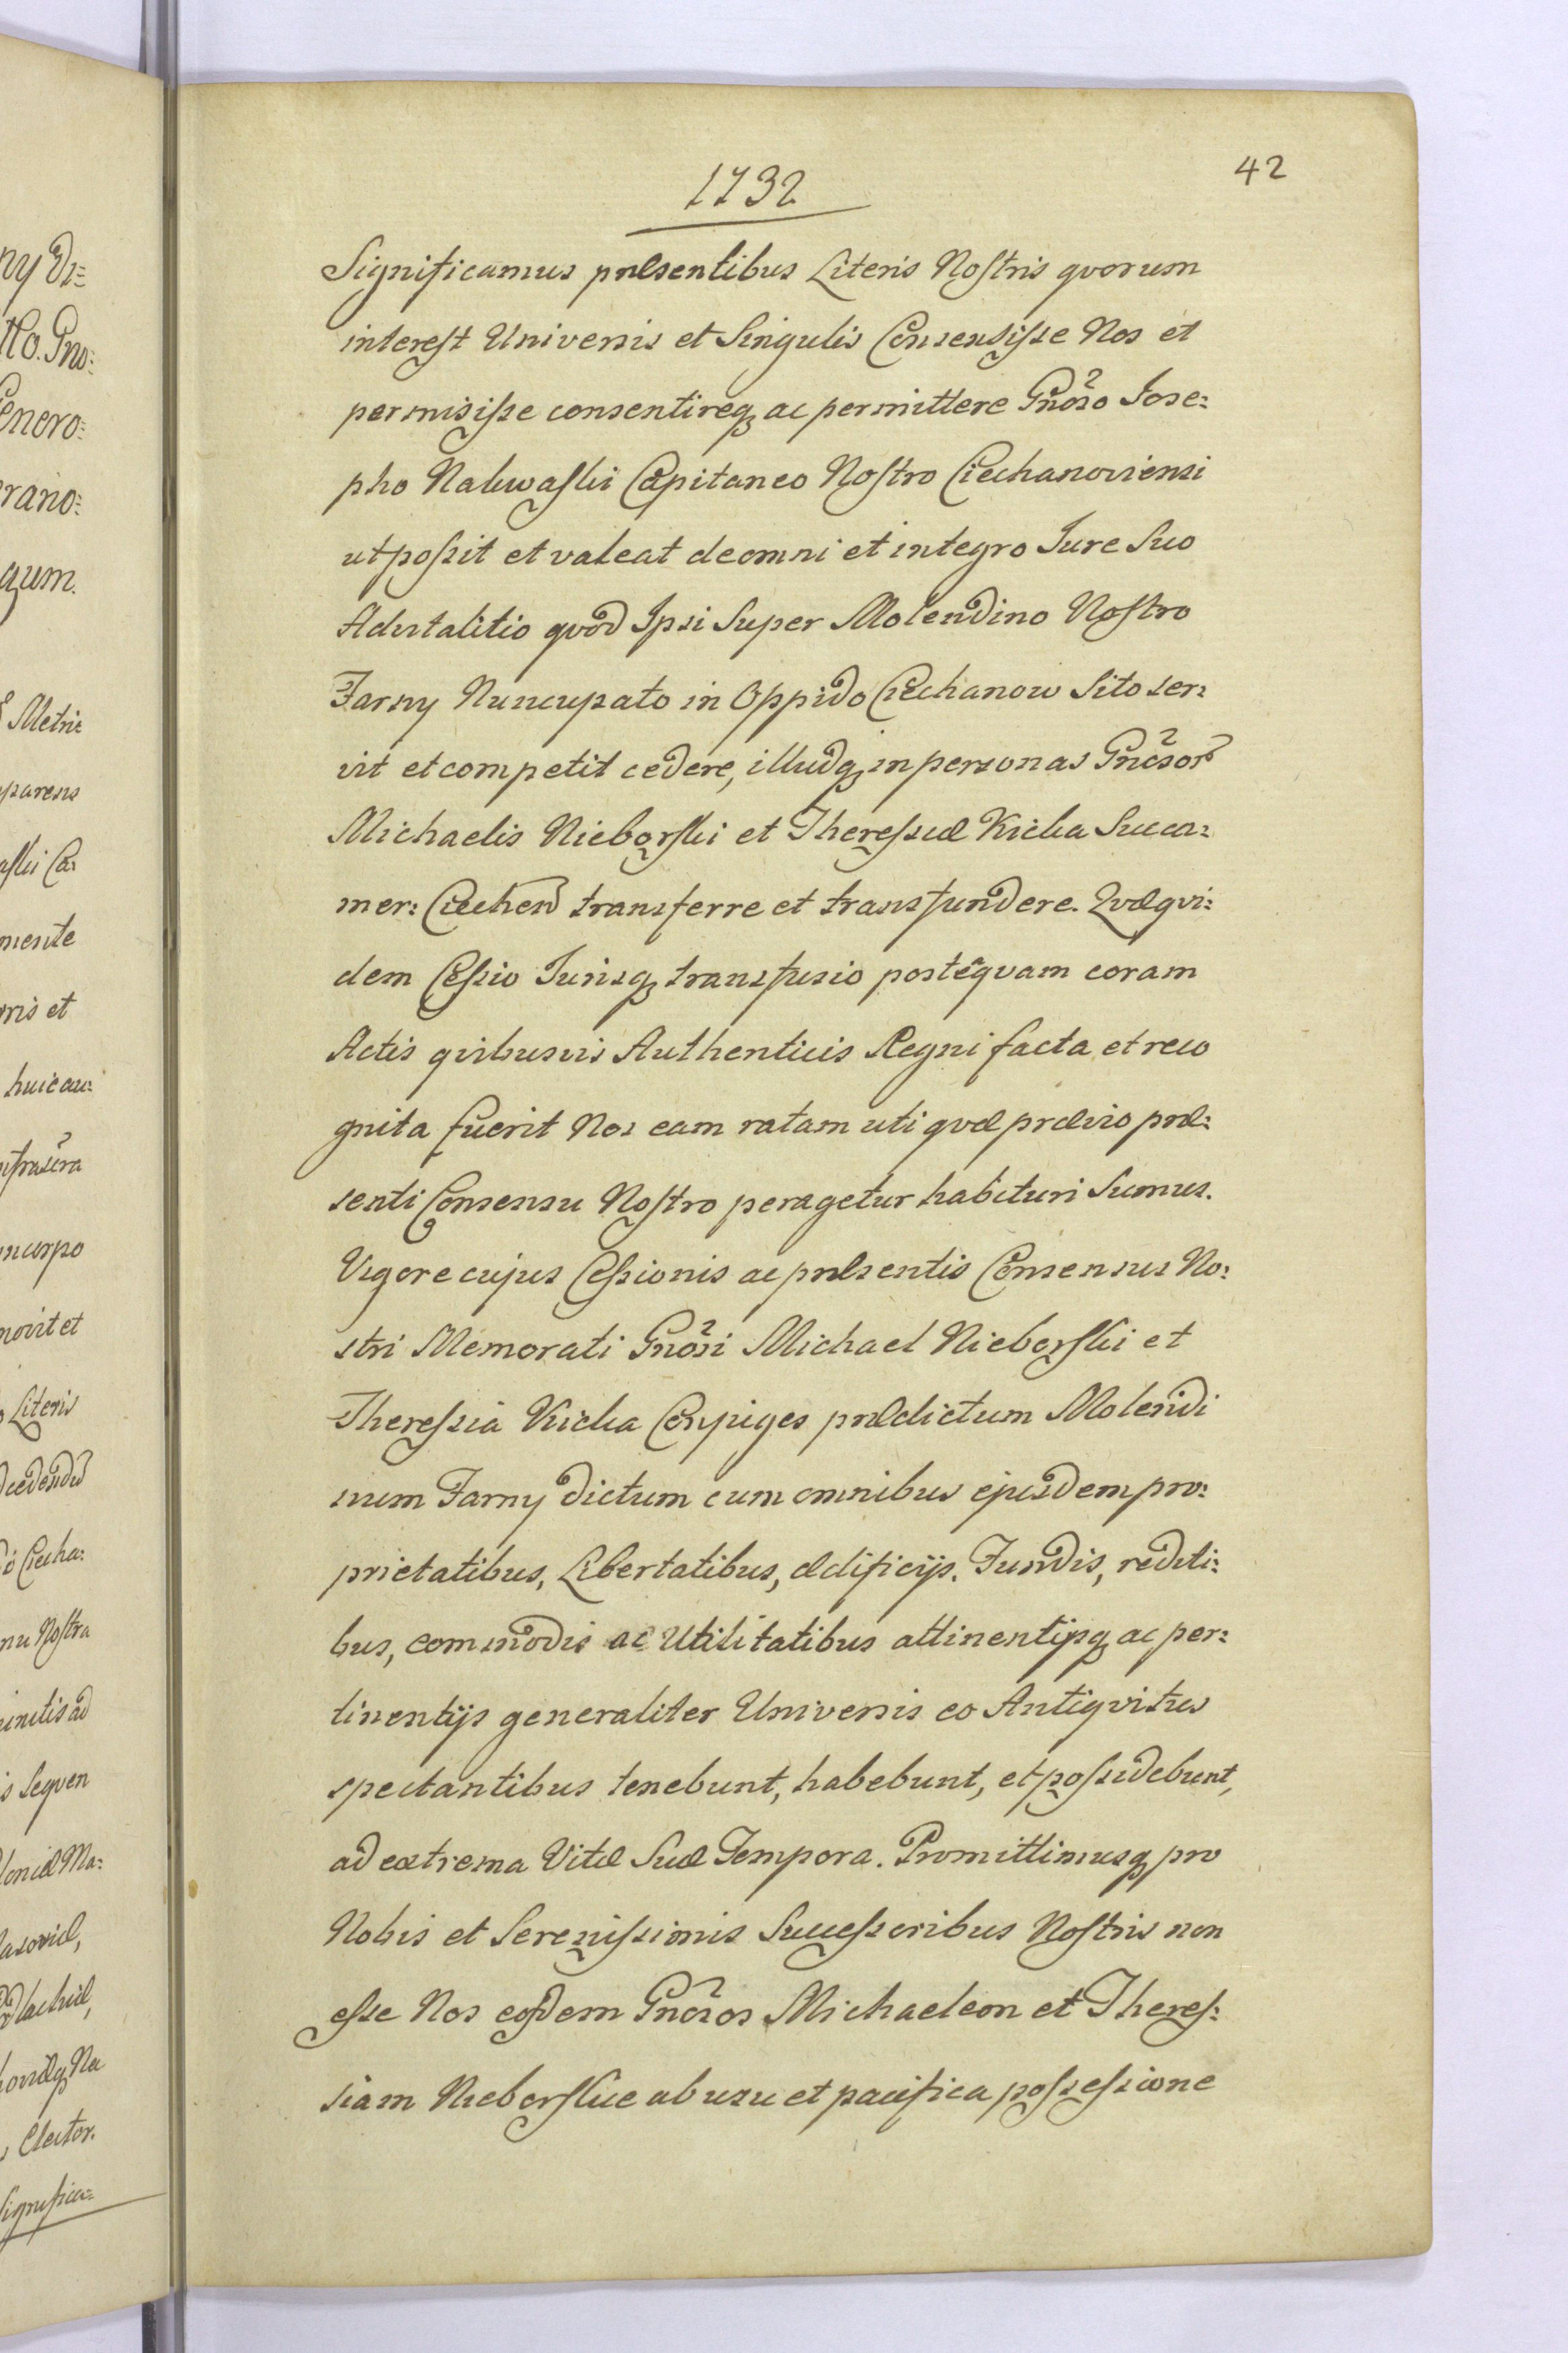 42
1732
Significamus præsentibus Literis Nostris qvorum
interest Universis et Singulis Consensisse Nos et
permisisse consentireq ac permittere Gnõso Jose:
pho Nakwaski Capitaneo Nostro Ciechanoviensi
ut possit et valeat de omni et integro Jure Suo
Advitalitio qvod Ipsi Super Molendino Nostro
Farny Nuncupato in Oppido Ciechanow Sito ser:
vit et competit cedere, illudq in personas Gnõsor
Michaelis Nieborski et Theressiæ Kicka Succa:
mer: Ciechen transferre et transfundere. Qvæ qvi:
dem Cessio Jurisq transfusio posteqvam coram
Actis qvibusvis Authenticis Regni facta et reco
gnita fuerit Nos eam ratam uti qvæ prævio præ:
senti Consensu Nostro peragetur habituri Sumus.
Vigore cujus Cessionis ac præsentis Consensus No:
stri Memorati Gnõsi Michael Nieborski et
Theressia Kicka Conjuges prædictum Molendi
num Farny dictum cum omnibus ejusdem pro:
prietatibus, Libertatibus, ædificijs. Fundis, rediti:
bus, commodis ac Utilitatibus attinentijsq ac per:
tinentijs generaliter Universis eo Antiqvitus
spectantibus tenebunt, habebunt, et possidebunt,
ad extrema Vitæ Suæ Tempora. Promittimusq pro
Nobis et Serenissimis Successoribus Nostris non
esse Nos eosdem Gnõsos Michaelem et Theres:
siam Nieborskie ab usu et pacifica possessione